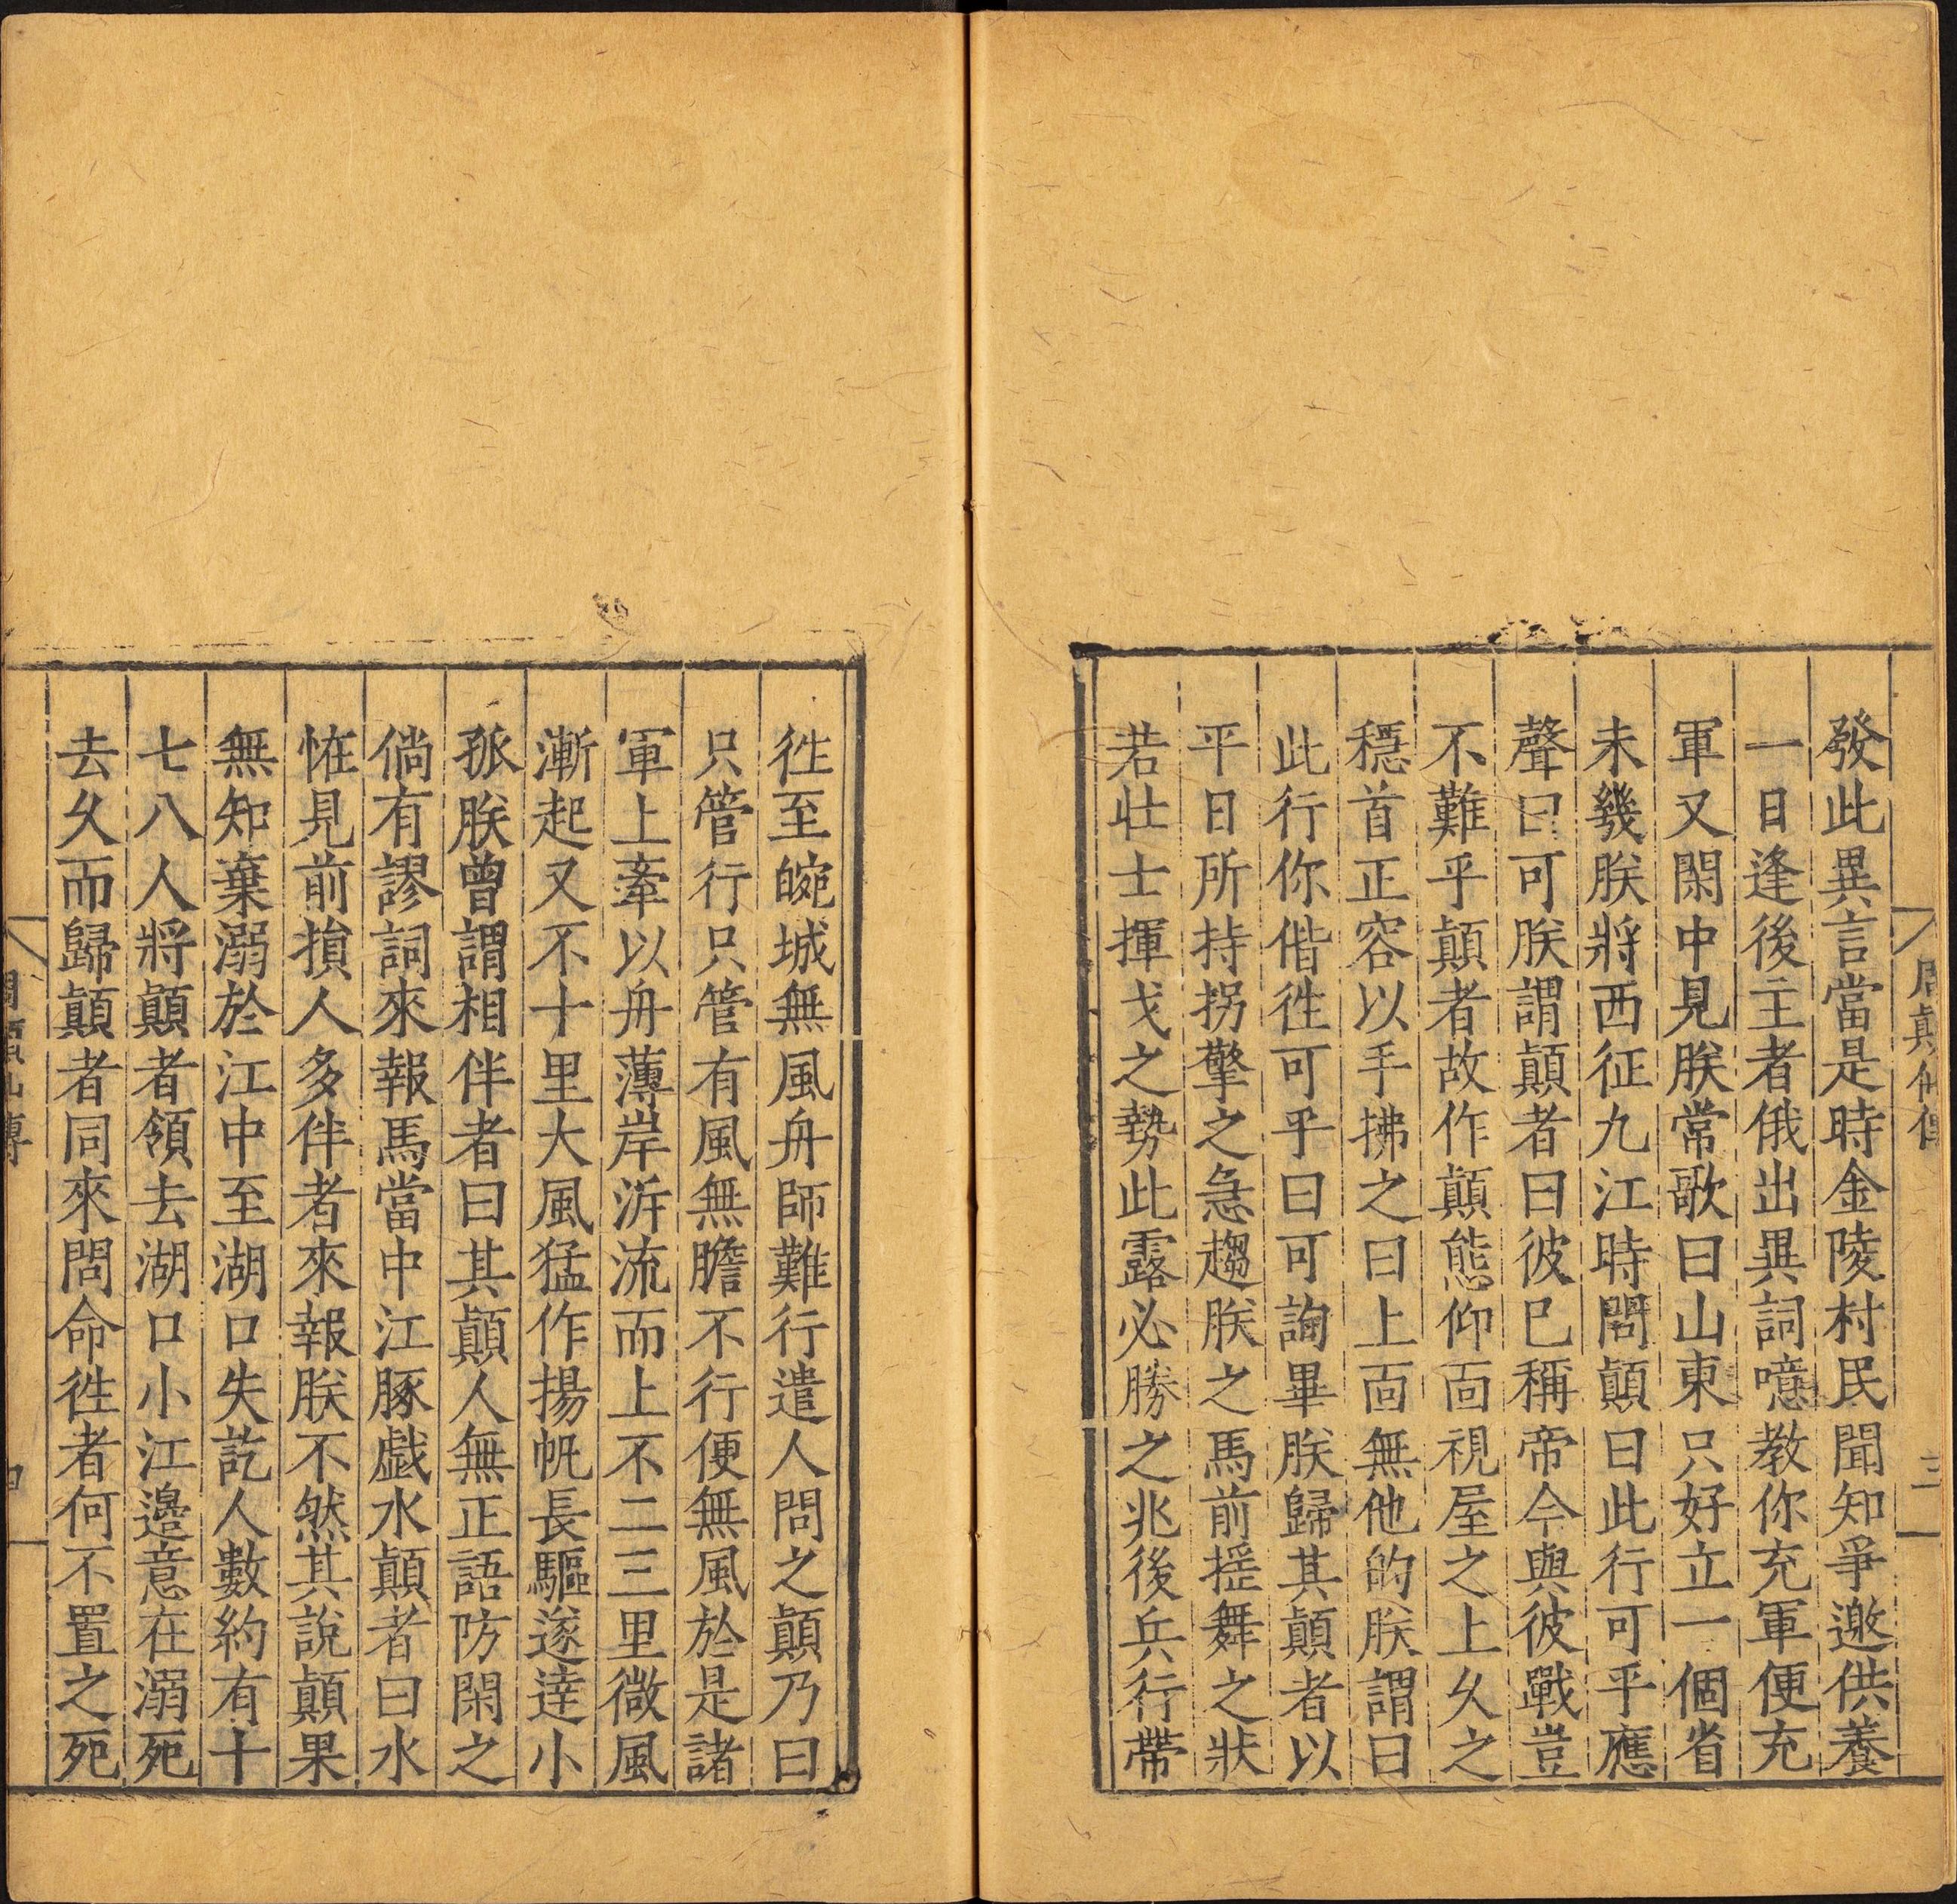 周顛仙傳
三
發此異言當是時金陵村民聞知爭邀供養
一日逢後主者俄出異詞噫教你充軍便充
軍又閑中見朕常歌曰山東只好立一個省
未幾朕將西征九江時問顛曰此行可乎應
聲曰可朕謂顛者曰彼已稱帝今與彼戰豈
不難乎顛者故作顛態仰面視屋之上久之
穩首正容以手拂之曰上面無他的朕謂曰
此行你偕徃可乎曰可詢畢朕歸其顛者以
平日所持拐擎之急趨朕之馬前揺舞之狀
若壯士揮戈之勢此露必勝之兆後兵行帶
徃至皖城無風舟師難行遣人問之顛乃曰
只管行只管有風無膽不行便無風於是諸
軍上牽以舟薄岸泝流而上不二三里微風
漸起又不十里大風猛作揚帆長驅遂達小
孤朕曾謂相伴者曰其顛人無正語防閑之
倘有謬詞來報馬當中江豚戯水顛者曰水
恠見前損人多伴者來報朕不然其說顛果
無知棄溺於江中至湖口失訖人數約有十
七八人將顛者領去湖口小江邊意在溺死
去久而歸顛者同來問命徃者何不置之死
周顛仙傳
四